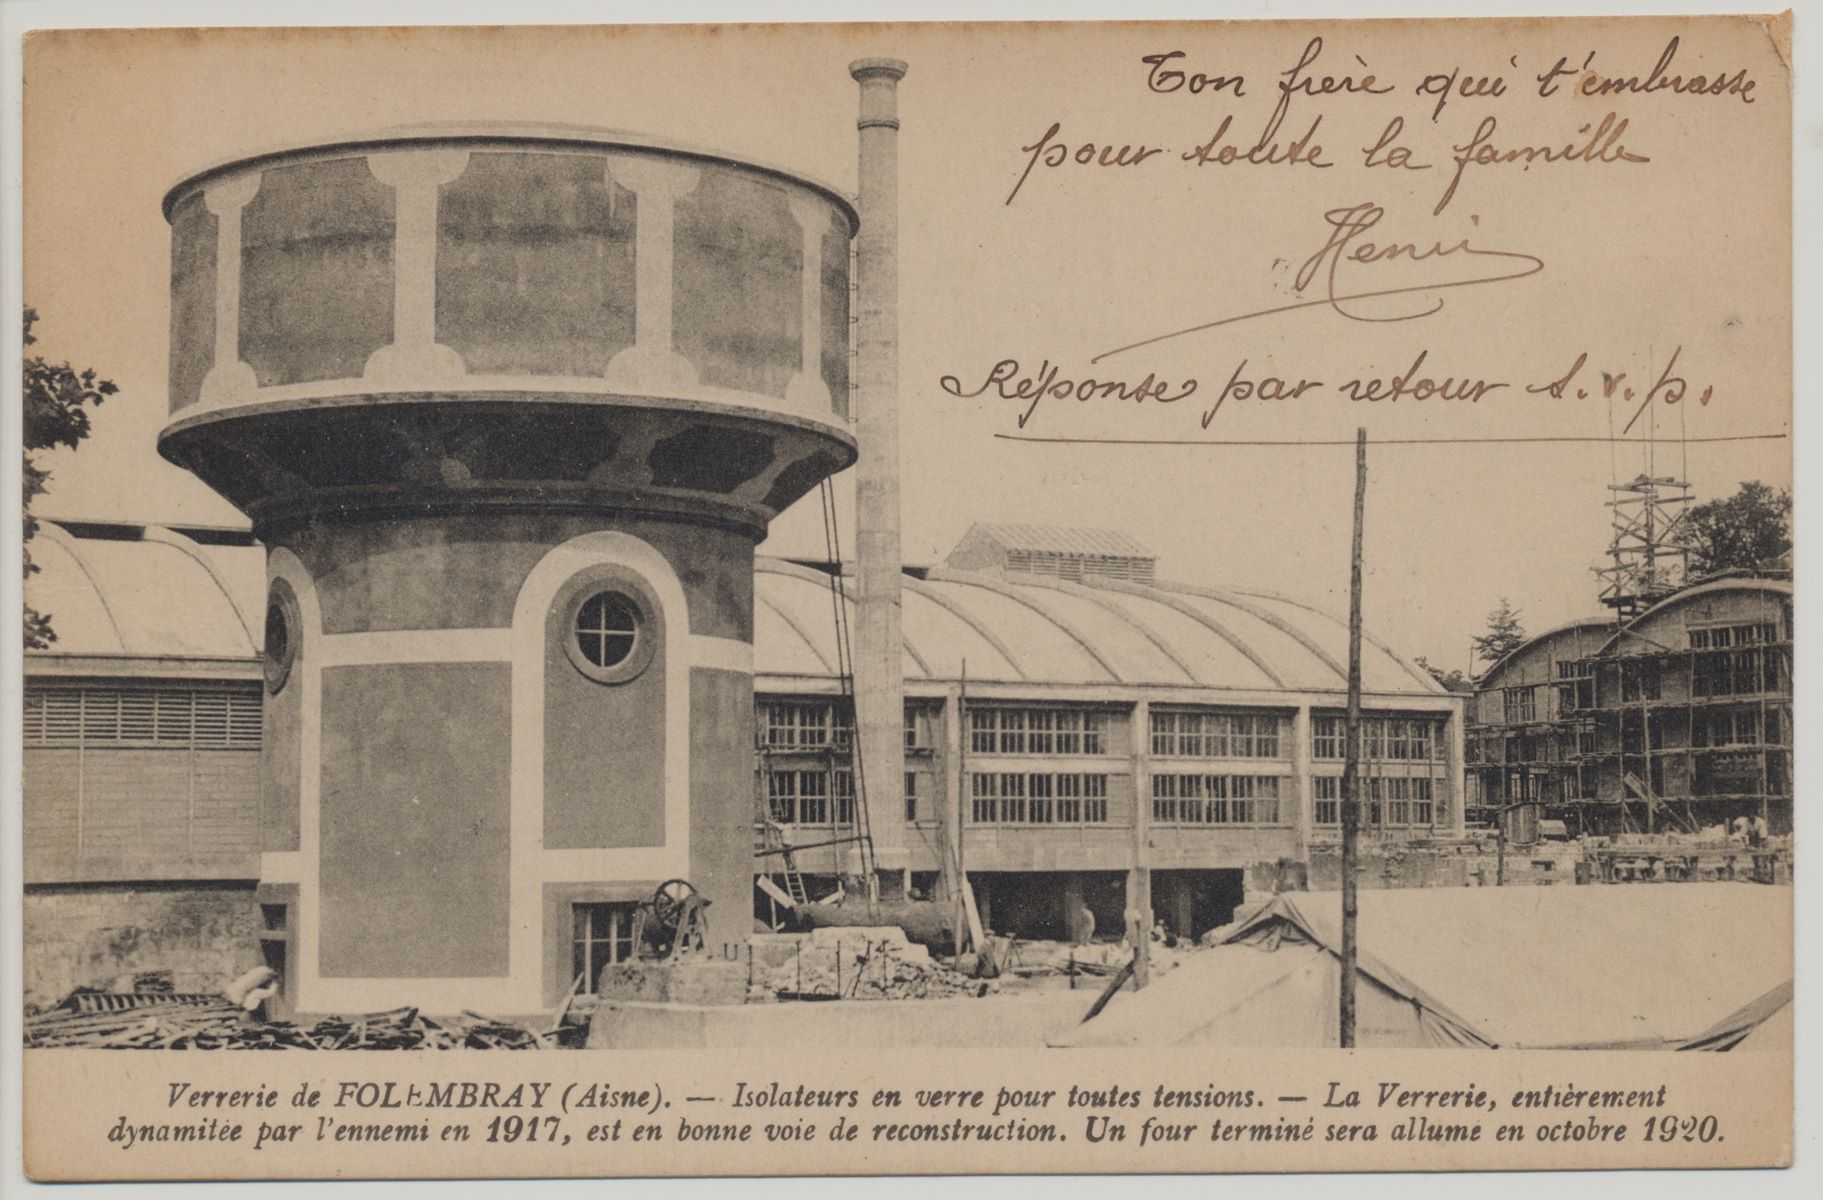 Ton frère qui t'embrasse
pour toute la famille
Henri
Réponse par retour s.v.p.
Verrerie de FOLEMBRAY (Aisne). — Isolateurs en verre pour toutes tensions. — La Verrerie, entièrement
dynamitée par l'ennemi en 1917, est en bonne voie de reconstruction. Un four terminé sera allumé en octobre 1920.